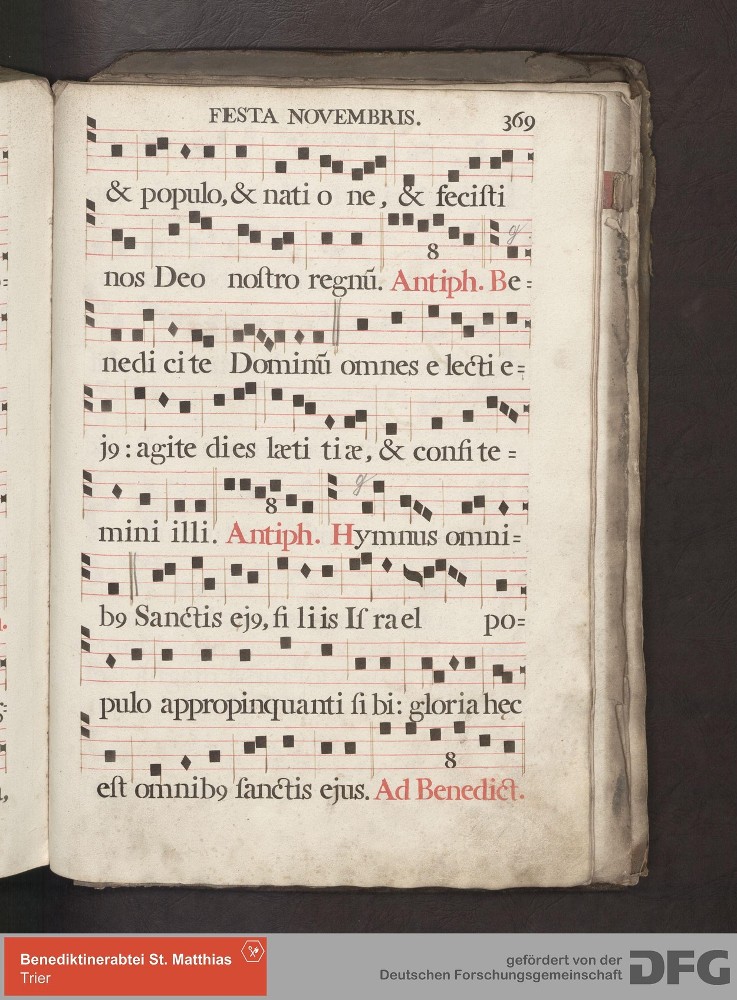 FESTA NOVEMBRIS. 369
& populo, & nati o ne, & feciſti
8 g
nos Deo noſtro regnū. Antiph. Be=
nedi ci te Dominū omnes e lecti e=
j9: agite dies læti tiæ, & confi te=
8 g
mini illi. Antiph. Hymnus omni=
b9 Sanctis ej9, fi li is Iſ rael po=
pulo appropinquanti ſi bi: gloria hęc
8
eſt omnib9 ſanctis ejus. Ad Benedict.
Benediktinerabtei St. Matthias
Trier
gefördert von der
Deutschen Forschungsgemeinschaft
DFG